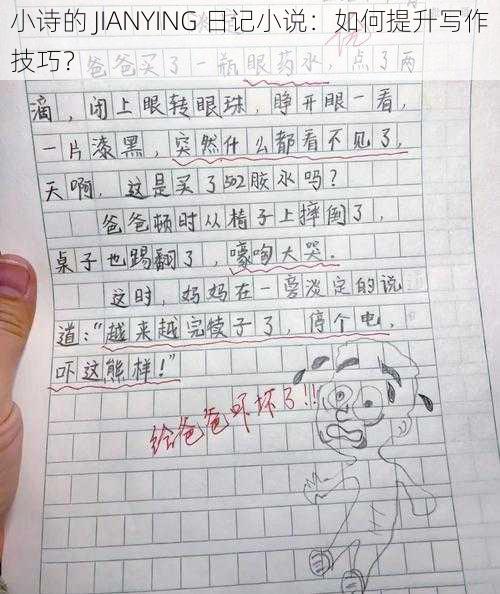 小诗的 JIANYING 日记小说：如何提升写作
技巧？
爸爸买了一瓶眼药水，点了两
滴，闭上眼转眼珠，睁开眼一看，
一片漆黑，突然什么都看不见了，
天啊，这是买了502胶水吗？
爸爸顿时从椅子上摔倒了，
桌子也踢翻了，嚎啕大哭。
这时，妈妈在一旁淡定的说
道：“越来越完犊子了，停个电，
吓这熊样！”
给爸爸吓坏了!!!